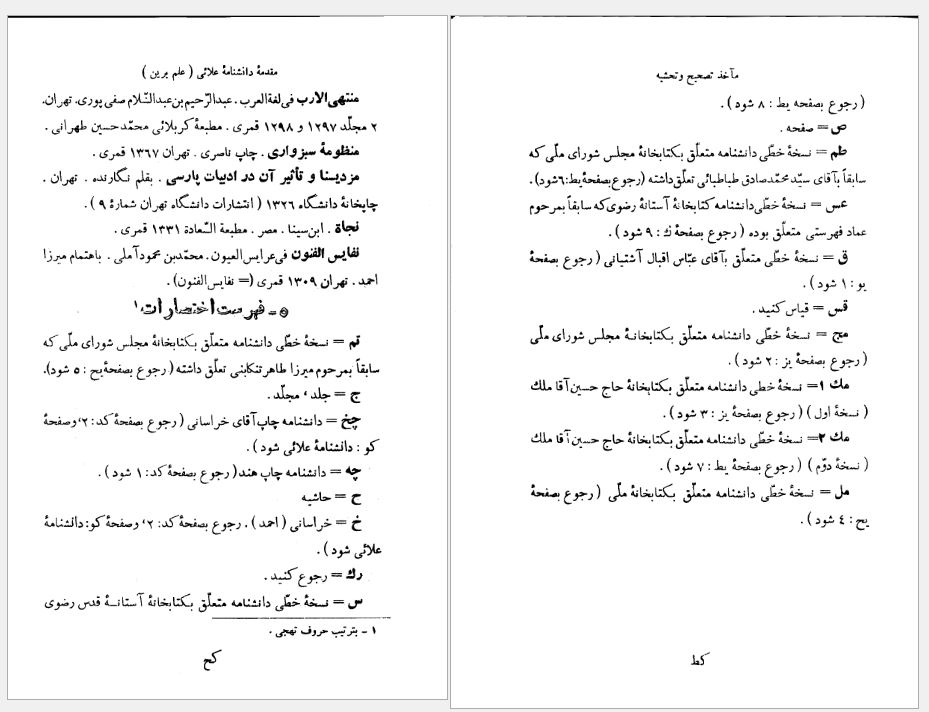 مقدمهٔ دانشنامهٔ علائی ( علم برین )
منتهی‌الارب فی لغة العرب . عبدالرّحیم‌بن‌عبدالسّلام صفی پوری. تهران.
۲ مجلّد ۱۲۹۷ و ۱۲۹۸ قمری . مطبعهٔ کربلائی محمّدحسین طهرانی .
منظومهٔ سبزواری . چاپ ناصری . تهران ۱۳٦۷ قمری .
مزدیسنا و تأثیر آن در ادبیات پارسی . بقلم نگارنده . تهران .
چاپخانهٔ دانشگاه ۱۳۲٦ ( انتشارات دانشگاه تهران شمارهٔ ۹ ) .
نجاة . ابن‌سینا . مصر . مطبعة السّعادة ۱۳۳۱ قمری .
نفایس الفنون فی عرایس‌العیون. محمّدبن محمود آملی . باهتمام میرزا
احمد . تهران ۱۳۰۹ قمری (= نفایس‌الفنون) .
۵ - فهرست اختصارات ۱
تم = نسخهٔ خطّی دانشنامه متعلّق بکتابخانهٔ مجلس شورای ملّی که
سابقاً بمرحوم میرزا طاهر تنکابنی تعلّق داشته ( رجوع بصفحهٔ یح : ۵ شود).
ج = جلد ، مجلّد .
چخ = دانشنامه چاپ آقای خراسانی ( رجوع بصفحهٔ کد: ۲، وصفحهٔ
کو : دانشنامهٔ علائی شود ) .
چه = دانشنامه چاپ هند ( رجوع بصفحهٔ کد: ۱ شود ) .
ح = حاشیه
خ = خراسانی ( احمد ) . رجوع بصفحهٔ کد: ۲، وصفحهٔ کو: دانشنامهٔ
علائی شود ) .
رك = رجوع کنید .
س = نسخهٔ خطّی دانشنامه متعلّق بکتابخانهٔ آستانـهٔ قدس رضوی
۱ - بترتیب حروف تهجی .
کح
مآخذ تصحیح وتحشیه
( رجوع بصفحه یط : ۸ شود ) .
ص = صفحه .
طم = نسخهٔ خطّی دانشنامه متعلّق بکتابخانهٔ مجلس شورای ملّی که
سابقاً بآقای سیّدمحمّدصادق طباطبائی تعلّق‌داشته (رجوع‌بصفحهٔ‌یط:٦شود).
عس = نسخهٔ خطّی‌دانشنامه کتابخانهٔ آستانهٔ رضوی‌که سابقاً بمرحوم
عماد فهرستی متعلّق بوده ( رجوع بصفحهٔ ك : ۹ شود ) .
ق = نسخهٔ خطّی متعلّق بآقای عبّاس اقبال آشتیانی ( رجوع بصفحهٔ
یو : ۱ شود ) .
قس = قیاس کنید .
مج = نسخهٔ خطّی دانشنامه متعلّق بکتابخانـهٔ مجلس شورای ملّی
( رجوع بصفحهٔ یز : ۲ شود ) .
مك ۱= نسخهٔ خطی دانشنامه متعلّق بکتابخانهٔ حاج حسین آقا ملك
( نسخهٔ اول ) ( رجوع بصفحهٔ یز : ۳ شود ) .
مك ۲= نسخهٔ خطّی دانشنامه متعلّق بکتابخانهٔ حاج حسین آقا ملك
( نسخهٔ دوّم ) ( رجوع بصفحهٔ یط : ۷ شود ) .
مل = نسخهٔ خطّی دانشنامه متعلّق بکتابخانهٔ ملّی ( رجوع بصفحهٔ
یح : ٤ شود ) .
کط